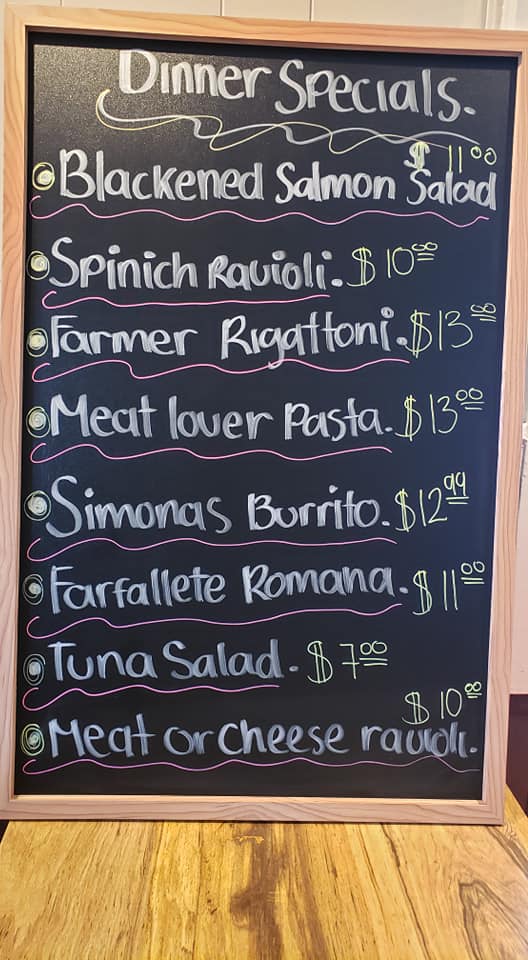 Dinner Specials.
$ 11 00
Blackened Salmon Salad
Spinich Ravioli. $ 10 00
Farmer Rigattoni. $ 13 00
Meat lover Pasta. $ 13 00
Simonas Burrito. $ 12 99
Farfallete Romana. $ 11 00
Tuna Salad. $ 7 00
$ 10 00
Meat or cheese ravioli.